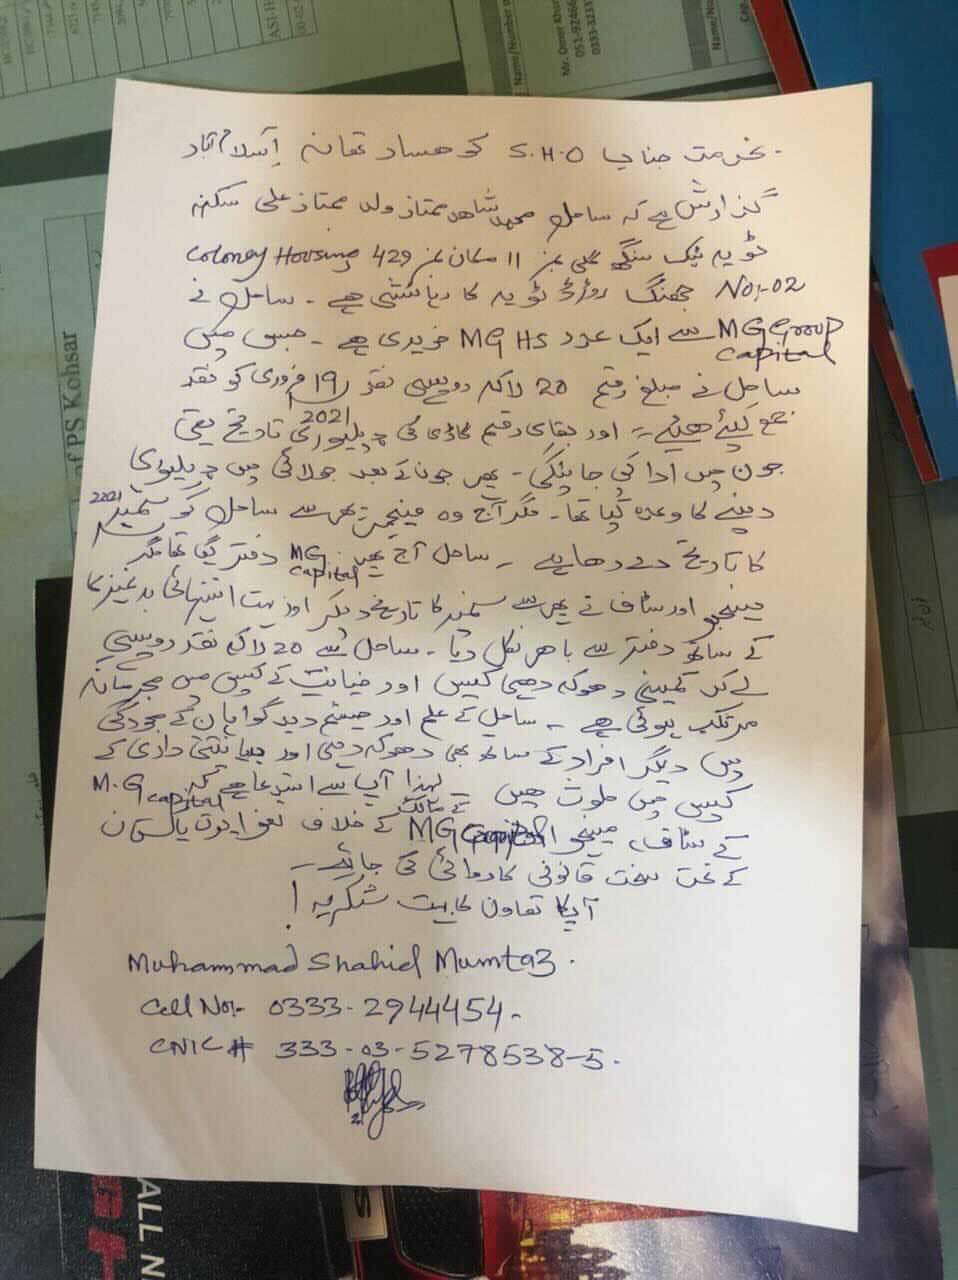 بخدمت جناب S.H.O کوہسار تھانہ اسلام آباد
گزارش ہے کہ ساحل محمد شاھد ممتاز ولد ممتاز علی سکنہ
ٹوبہ ٹیک سنگھ گلی نمبر 11 مکان نمبر 429 Coloney Housing
No:-02 جھنگ روڈ ٹوبہ کا رہائشی ہے ۔ ساحل نے
MG Group Capital سے ایک عدد MG HS خریدی ہے ۔ جس میں
ساحل نے مبلغ رقم 20 لاکھ روپے نقد 19 فروری کو نقد
جمع کیئے ھیئے ۔ اور بقایا رقم گاڑی کی ڈیلیوری 2021 تاریخ یعنی
جون میں ادا کی جائیگی ۔ پھر جون کے بعد جولائی میں ڈیلیوری
دینے کا وعدہ کیا تھا ۔ مگر آج وہ پھر سے ساحل کو ستمبر 2021
کا تاریخ دے رھا ہے ۔ ساحل آج بھی MG Capital دفتر گیا تھا مگر
مینیجر اور سٹاف نے پھر سے ستمبر کا تاریخ دیکر اور بہت انتہائی بدتمیز کا
کے ساتھ دفتر سے باھر نکل دیا ۔ ساحل سے 20 لاکھ نقد روپے
لے کر کمپنی دھوکہ دھی کیس اور خیانت کے کیس میں مجرمانہ
مرتکب ہوئی ہے ۔ ساحل کے علم اور چشم دید گواہان کے موجودگی
میں دیگر افراد کے ساتھ بھی دھوکہ دہی اور داری کے
کیس میں ملوث ھیں لہذا آپ سے استدعا ھے کہ M.G Capital
کے سٹاف، مینجر MG Capital کے مالک کے خلاف پاکستان
کے تحت سخت قانونی کاروائی کی جائے ۔
آپکا تعاون کا بہت شکریہ !
Muhammad Shahid Mumtaz.
Cell No:- 0333-2944454.
CNIC # 333-03-5278538-5.
of PS Kohsar
Name/Number
051-92466
0333-3233
ALL N